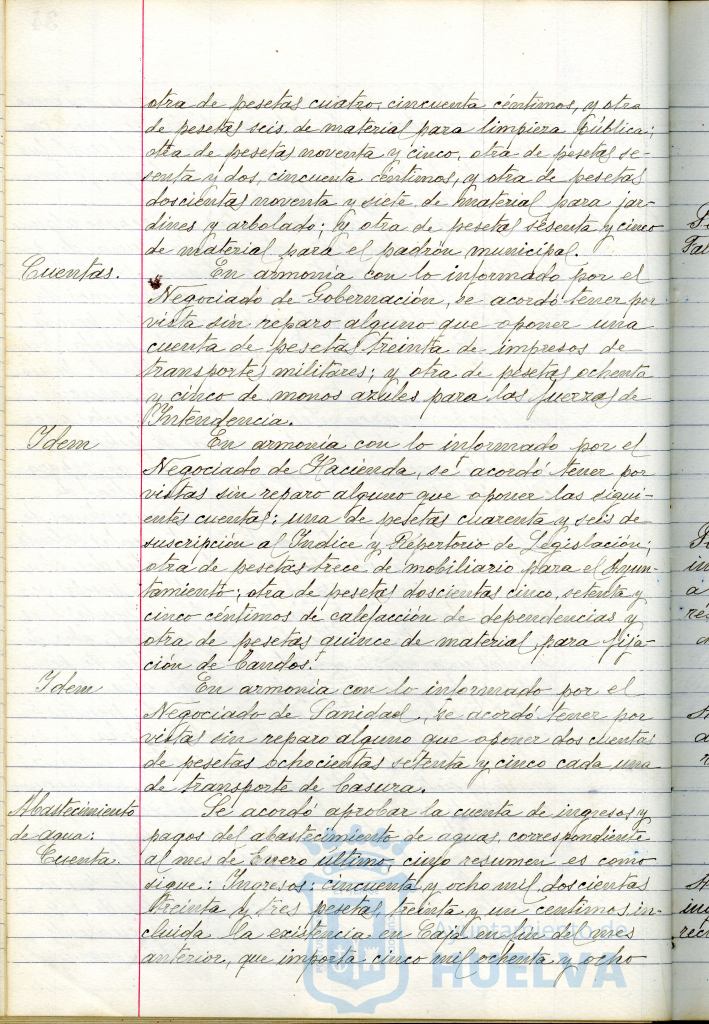 otra de pesetas cuatro, cincuenta céntimos, y otra
de pesetas seis, de material para limpieza pública;
otra de pesetas noventa y cinco, otra de pesetas se-
senta y dos, cincuenta céntimos, y otra de pesetas
doscientas noventa y siete de material para jar-
dines y arbolado; y otra de pesetas sesenta y cinco
de material para el padrón municipal.
Cuentas. En armonía con lo informado por el
Negociado de Gobernación, se acordó tener por
vista sin reparo alguno que oponer una
cuenta de pesetas treinta de impresos de
transportes militares; y otra de pesetas ochenta
y cinco de monos azules para las fuerzas de
Intendencia.
Idem En armonía con lo informado por el
Negociado de Hacienda, se acordó tener por
vistas sin reparo alguno que oponer las sigui-
entes cuentas: una de pesetas cuarenta y seis de
suscripción al Indice y Repertorio de Legislación;
otra de pesetas trece de mobiliario para el Ayun-
tamiento; otra de pesetas doscientas cinco, setenta y
cinco céntimos de calefacción de dependencias y
otra de pesetas quince de material para fija-
ción de bandos.
Idem En armonía con lo informado por el
Negociado de Sanidad, se acordó tener por
vistas sin reparo alguno que oponer dos cuentas
de pesetas ochocientas setenta y cinco cada una
de transporte de basura.
Abastecimiento Se acordó aprobar la cuenta de ingresos y
de agua. pagos del abastecimiento de aguas, correspondiente
Cuenta. al mes de Enero último, cuyo resumen es como
sigue: Ingresos: cincuenta y ocho mil doscientas
treinta y tres pesetas, treinta y un céntimos, in-
cluida la existencia en Caja en fin del mes
anterior, que importa cinco mil ochenta y ocho
Ayuntamiento de
HUELVA